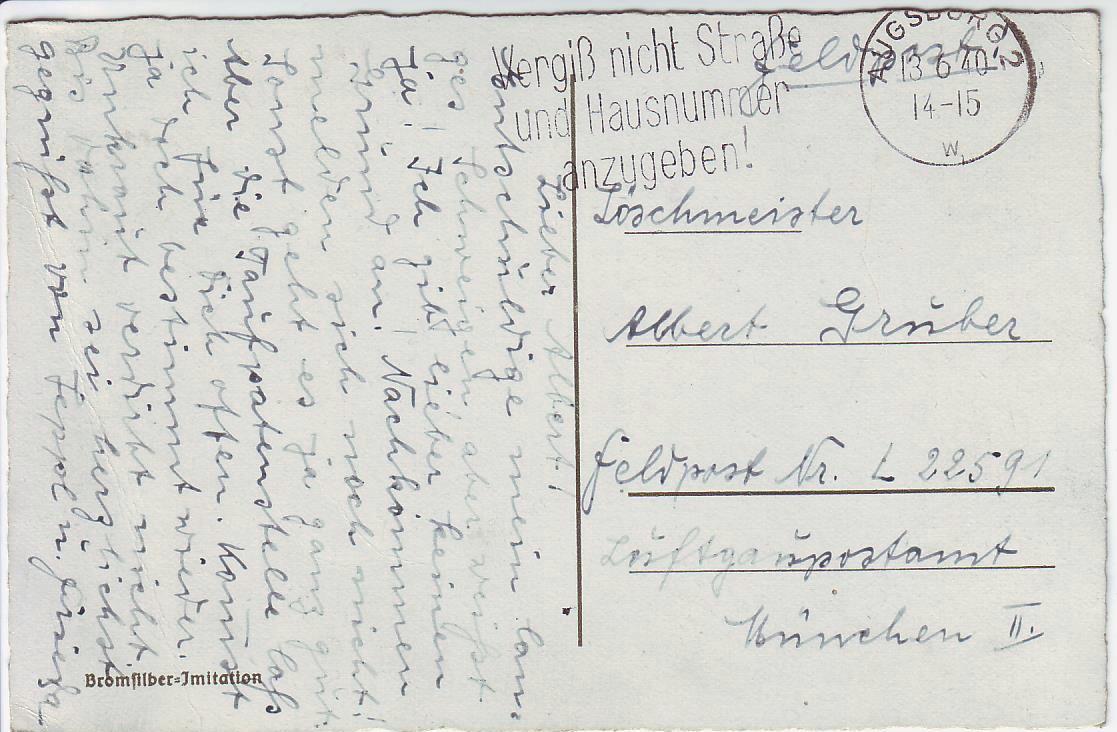 Vergiß nicht Straße
und Hausnummer
anzugeben!
AUGSBURG 2
13 6 40
14-15
w
Feldpost!
Löschmeister
Albert Gruber
Feldpost Nr. L 22591
Luftgaupostamt
München II.
Lieber Albert!
Entschuldige mein lan-
ges Schweigen aber weißt
ja! Ich gib lieber keinen
Grund an. Nachkommen
melden sich noch nicht!
Sonst geht es ja ganz gut.
Aber die Taufpatenstelle laß
ich für Dich offen. Kommst
ja doch bestimmt wieder.
Unkraut verdirbt nicht.
Bis dahin sei herzlichst
gegrüßt von Seppl u.
Bromsilber-Imitation